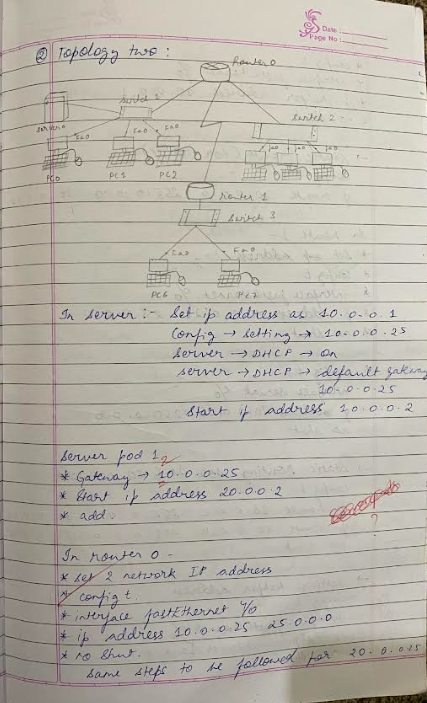 Date:
Page No:
② Topology two :
Router 0
Switch 1
Switch 2
Server 0
Fa0
Fa0
Fa0
Fa0
Fa0
Fa0
PC0
PC1
PC2
Router 1
Switch 3
Fa0
Fa0
PC6
PC7
In server :- Set ip address as 10.0.0.1
Config → Setting → 10.0.0.25
Server → DHCP → On
Server → DHCP → default gateway
10.0.0.25
Start ip address 10.0.0.2
Server pod 1
* Gateway → 10.0.0.25
* Start ip address 20.0.0.2
* add.
?
In router 0 -
* Set 2 network IP address
* config t.
* interface fastEthernet 4/0
* ip address 10.0.0.25 25.0.0.0
* no Shut.
Same steps to be followed for 20.0.0.25